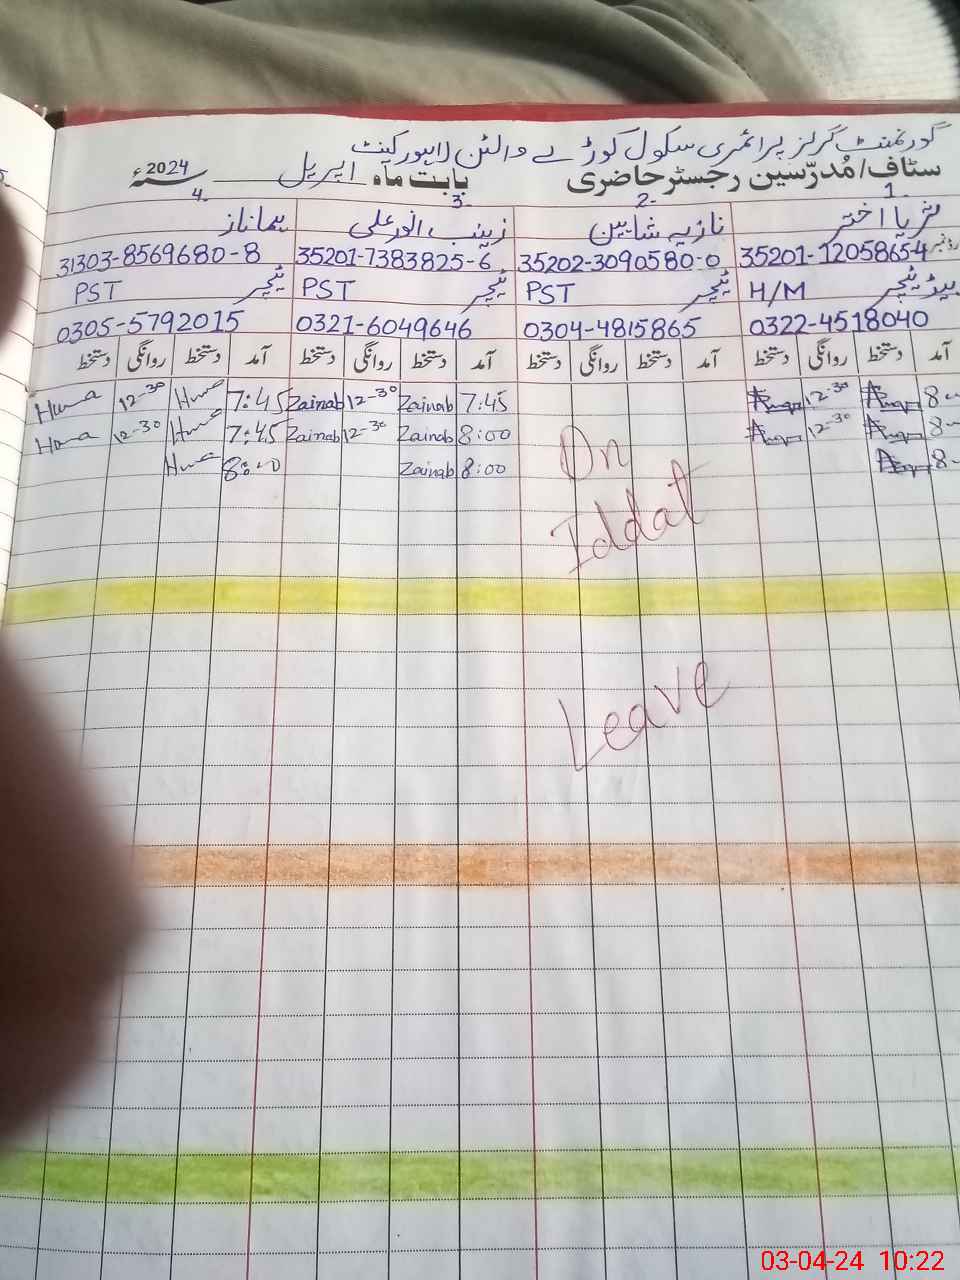 گورنمنٹ گرلز پرائمری سکول کوڑے والٹن لاہور کینٹ
سٹاف/مُدرّسین رجسٹر حاضری بابت ماہ اپریل سنہ 2024ء
1. 2- 3- 4.
ثریا اختر نازیہ شاہین زینب انور علی ہما ناز
35201-12058654 35202-3090580-0 35201-7383825-6 31303-8569680-8
ہیڈ ٹیچر H/M ٹیچر PST ٹیچر PST ٹیچر PST
0322-4518040 0304-4815865 0321-6049646 0305-5792015
آمد دستخط روانگی دستخط آمد دستخط روانگی دستخط آمد دستخط روانگی دستخط آمد دستخط روانگی دستخط
8- 12-30 7:45 Zainab 12-30 Zainab 7:45 Huma 12-30 Huma
8- 12-30 8:00 Zainab 12-30 Zainab 7:45 Huma 12-30 Huma
8- 8:00 Zainab 8:00 Huma
On
Iddat
Leave
03-04-24 10:22